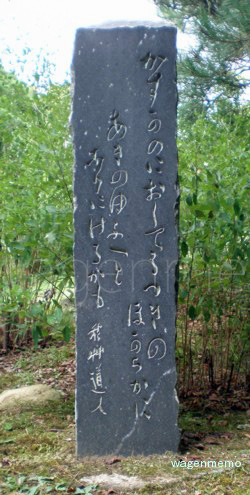 かすかのにおしてるつきの
ほからかに
あきのゆふへと
なりにけるかも
秋艸道人
wagenmemo